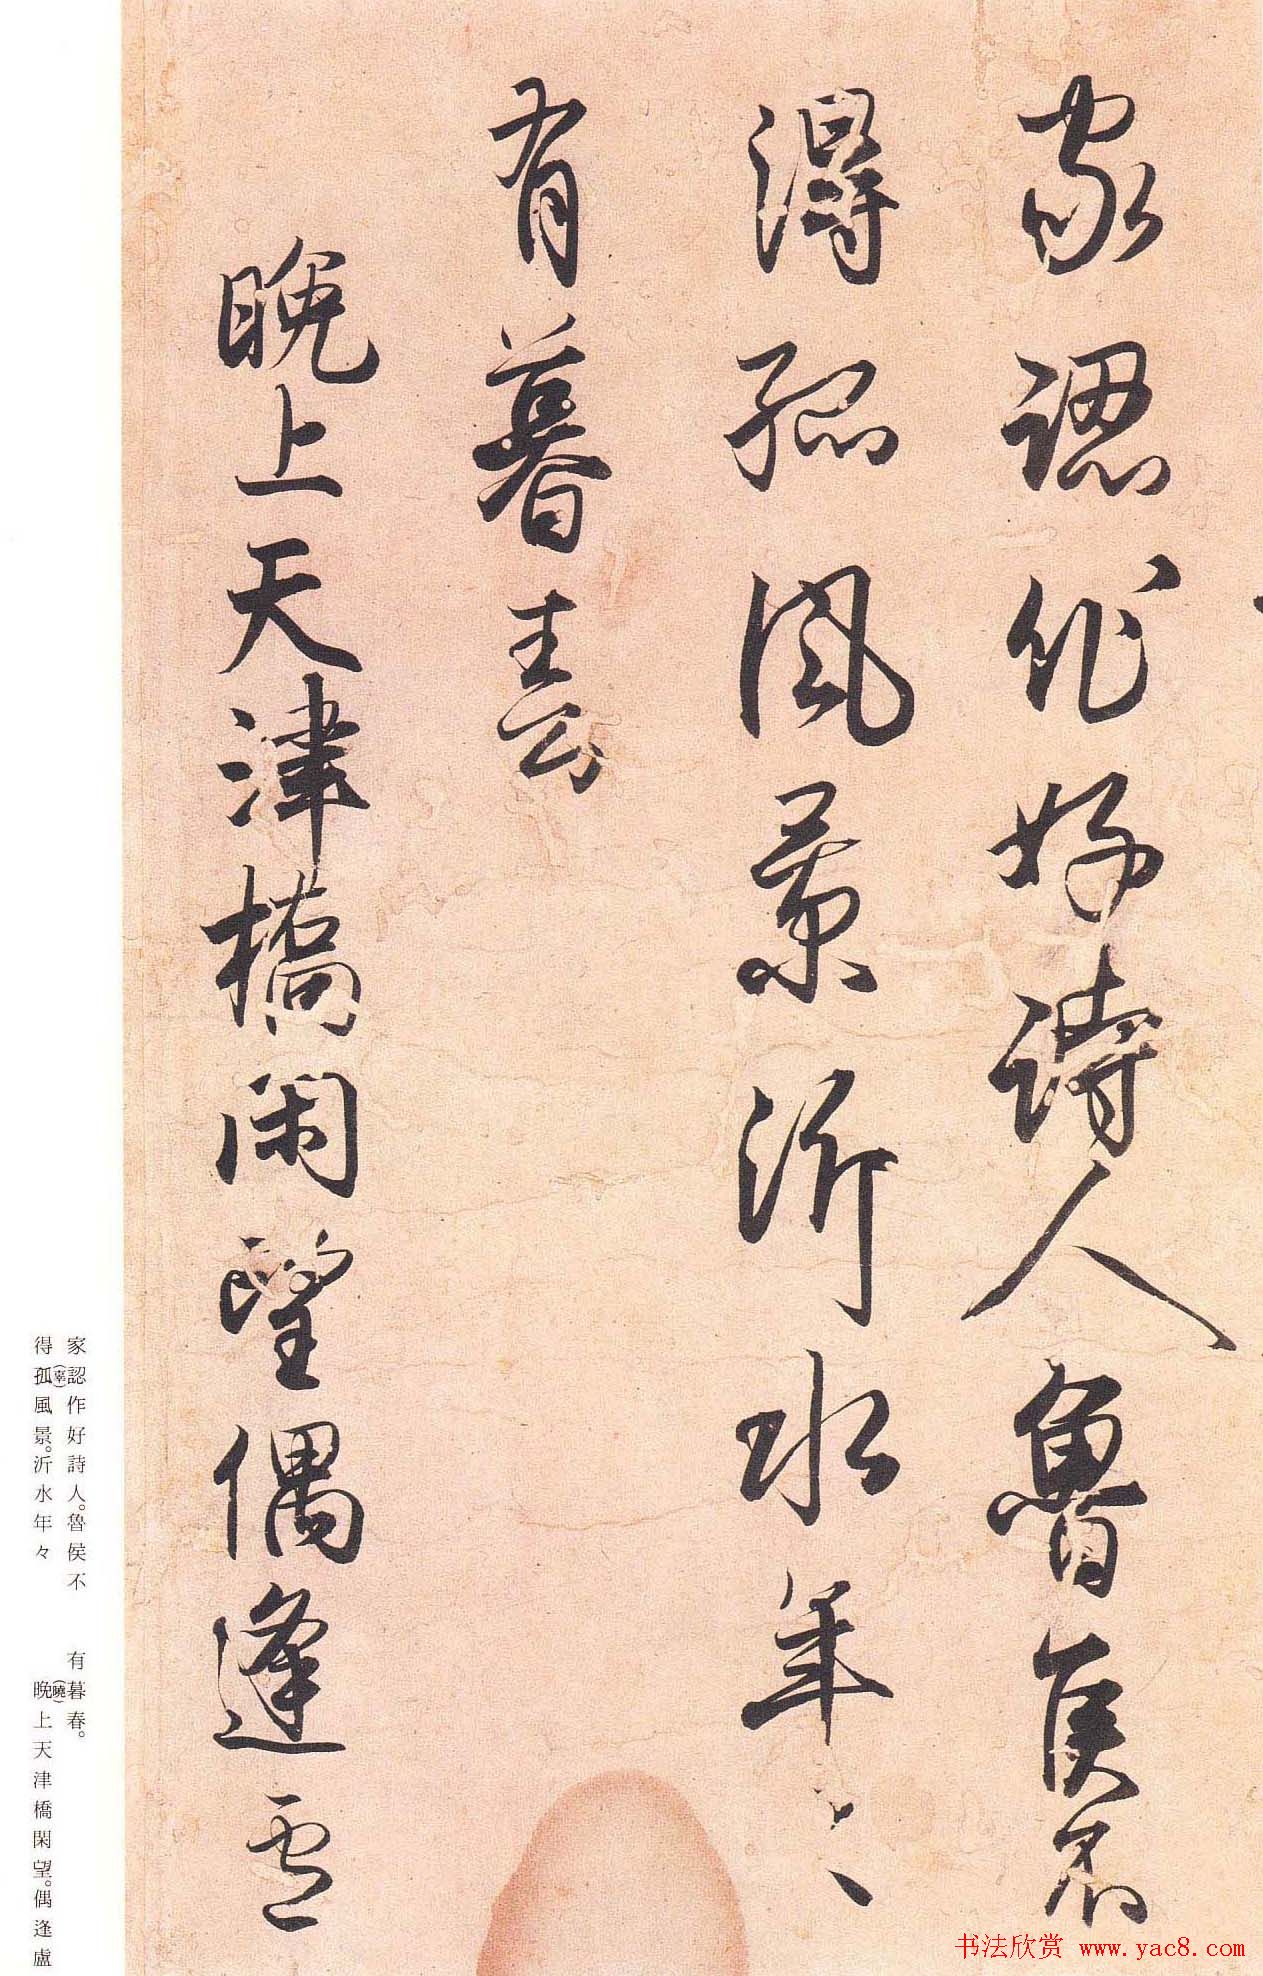 家認作好詩人魯侯不
得孤風景沂水年々
有暮春
晚上天津橋閑望偶逢盧
家認(辜)作好詩人。魯侯不
得孤風景。沂水年々
有暮春。
晚(曉)上天津橋閑望。偶逢盧
书法欣赏 www.yac8.com